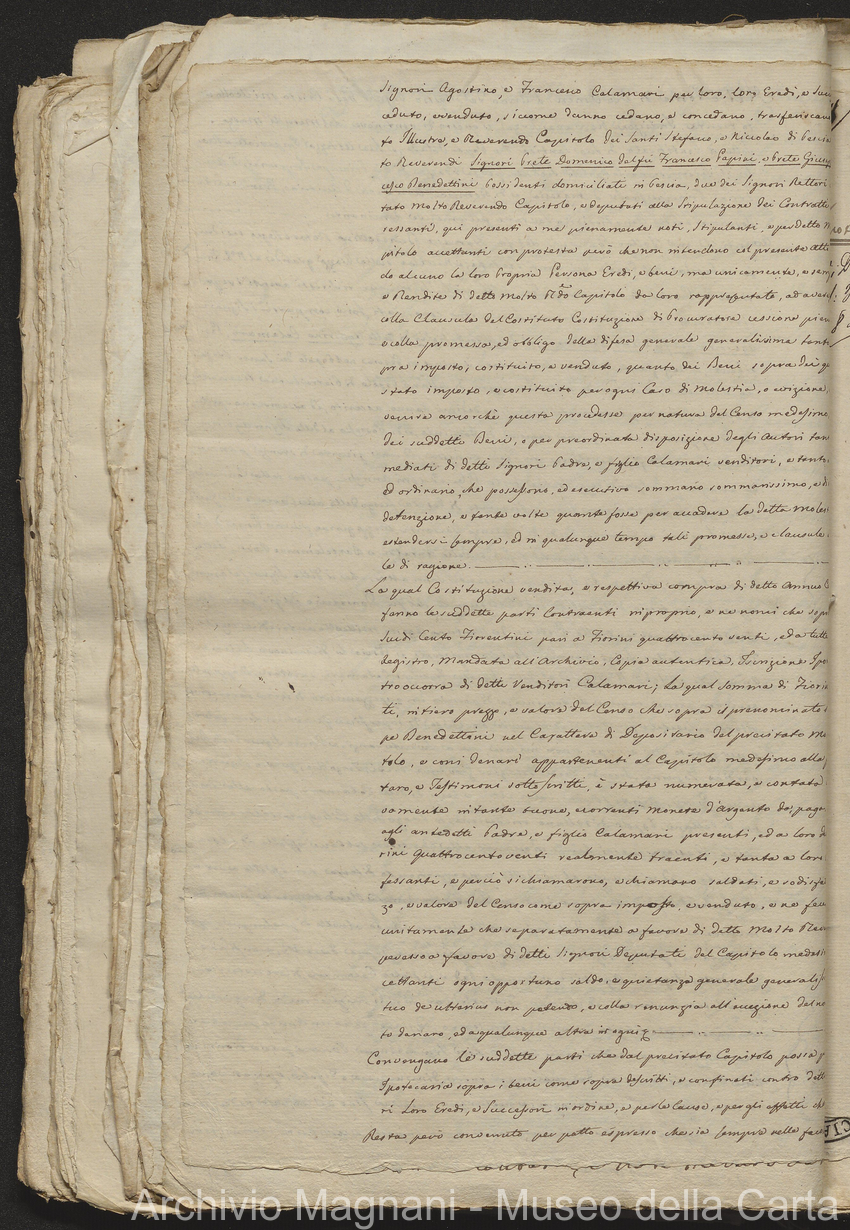 Signori Agostino, e Francesco Calamari per loro, loro Eredi, e Suc
ceduto, e venduto, siccome danno cedano, e concedano, trasferiscano
to Illustre, e Reverendo Capitolo dei Santi Stefano, e Niccolao di Pescia
to Reverendi Signori Prete Domenico del fu Francesco Papini, e Prete Giusep
cesco Benedettini Possidenti domiciliati in Pescia, due dei Signori Rettori
tato Molto Reverendo Capitolo, e deputati alla Stipulazione dei Contratti
ressanti, qui presenti a me pienamente noti, Stipulanti, e per detto
pitolo accettanti con protesta però che non intendono col presente Atto
do alcuno la loro Propria Persona Eredi, e beni, ma unicamente, e sem
e Rendite di detto Molto Rdo Capitolo da loro rappresentato, ad avere
colla Clausula del Costituto Costituzione di Procuratore cessione pien
e colla promessa, ed obbligo della difesa generale generalissima tant
pra imposto, costituito, e venduto, quanto dei Beni sopra dei q
stato imposto, e costituito per ogni Caso di Molestia, o evizione,
venire ancorchè questa procedesse per natura del Censo medesimo
dei suddetti Beni, o per preordinata disposizione degli Autori tan
mediati di detti Signori Padre, e figlio Calamari venditori, e tanto
ed ordinario, che possessorio, ed esecutivo sommario sommarissimo, e d
detenzione, e tante volte quante fosse per accadere la detta Moles
estendersi sempre, ed in qualunque tempo tali promesse, e clausule
le di ragione.
La qual Costituzione vendita, e respettiva compra di detto Annuo C
fanno le suddette parti Contraenti in proprio, e ne nomi che sopr
Scudi Cento Fiorentini pari a Fiorini quattrocento venti, ed a tutte
Registro, Mandata all'Archivio, Copia autentica, Iscrizione Ipo
tro occorra di detti Venditori Calamari; La qual somma di Fiori
ti, intiero prezzo, e valore del Censo che sopra il prenominato
pe Benedettini nel Carattere di Depositario del precitato Mo
tolo, e coni denari appartenenti al Capitolo medesimo alla
taro, e Testimoni sottoscritti, è stata numerata, e contata
vamente in tante buone, e correnti Monete d'Argento da, paga
agli antedetti Padre, e figlio Calamari presenti, ed a loro
rini Quattrocentoventi realmente traenti, e tanta a loro
fessanti, e perciò si chiamarono, e chiamano saldati, e sodisfa
zo, e valore del Censo come sopra imposto, e venduto, e ne fec
unitamente che separatamente a favore di detto Molto Reve
per esso a favore di detti Signori Deputati del Capitolo medesi
cettanti ogni opportuno saldo, e quietanza generale generaliss
tuo de ulterius non petendo, e colla renunzia all'eccezione del no
to denaro, ed a qualunque altra in ogni
Convengano le suddette parti che dal precitato Capitolo possa p
Ipotecaria sopra i beni come sopra descritti, e confinati contro detti
ri Loro Eredi, e Successori in ordine, e per la Causa, e per gli effetti ch
Resta però convenuto per patto espresso che sia sempre nella faco
Archivio Magnani - Museo della Carta